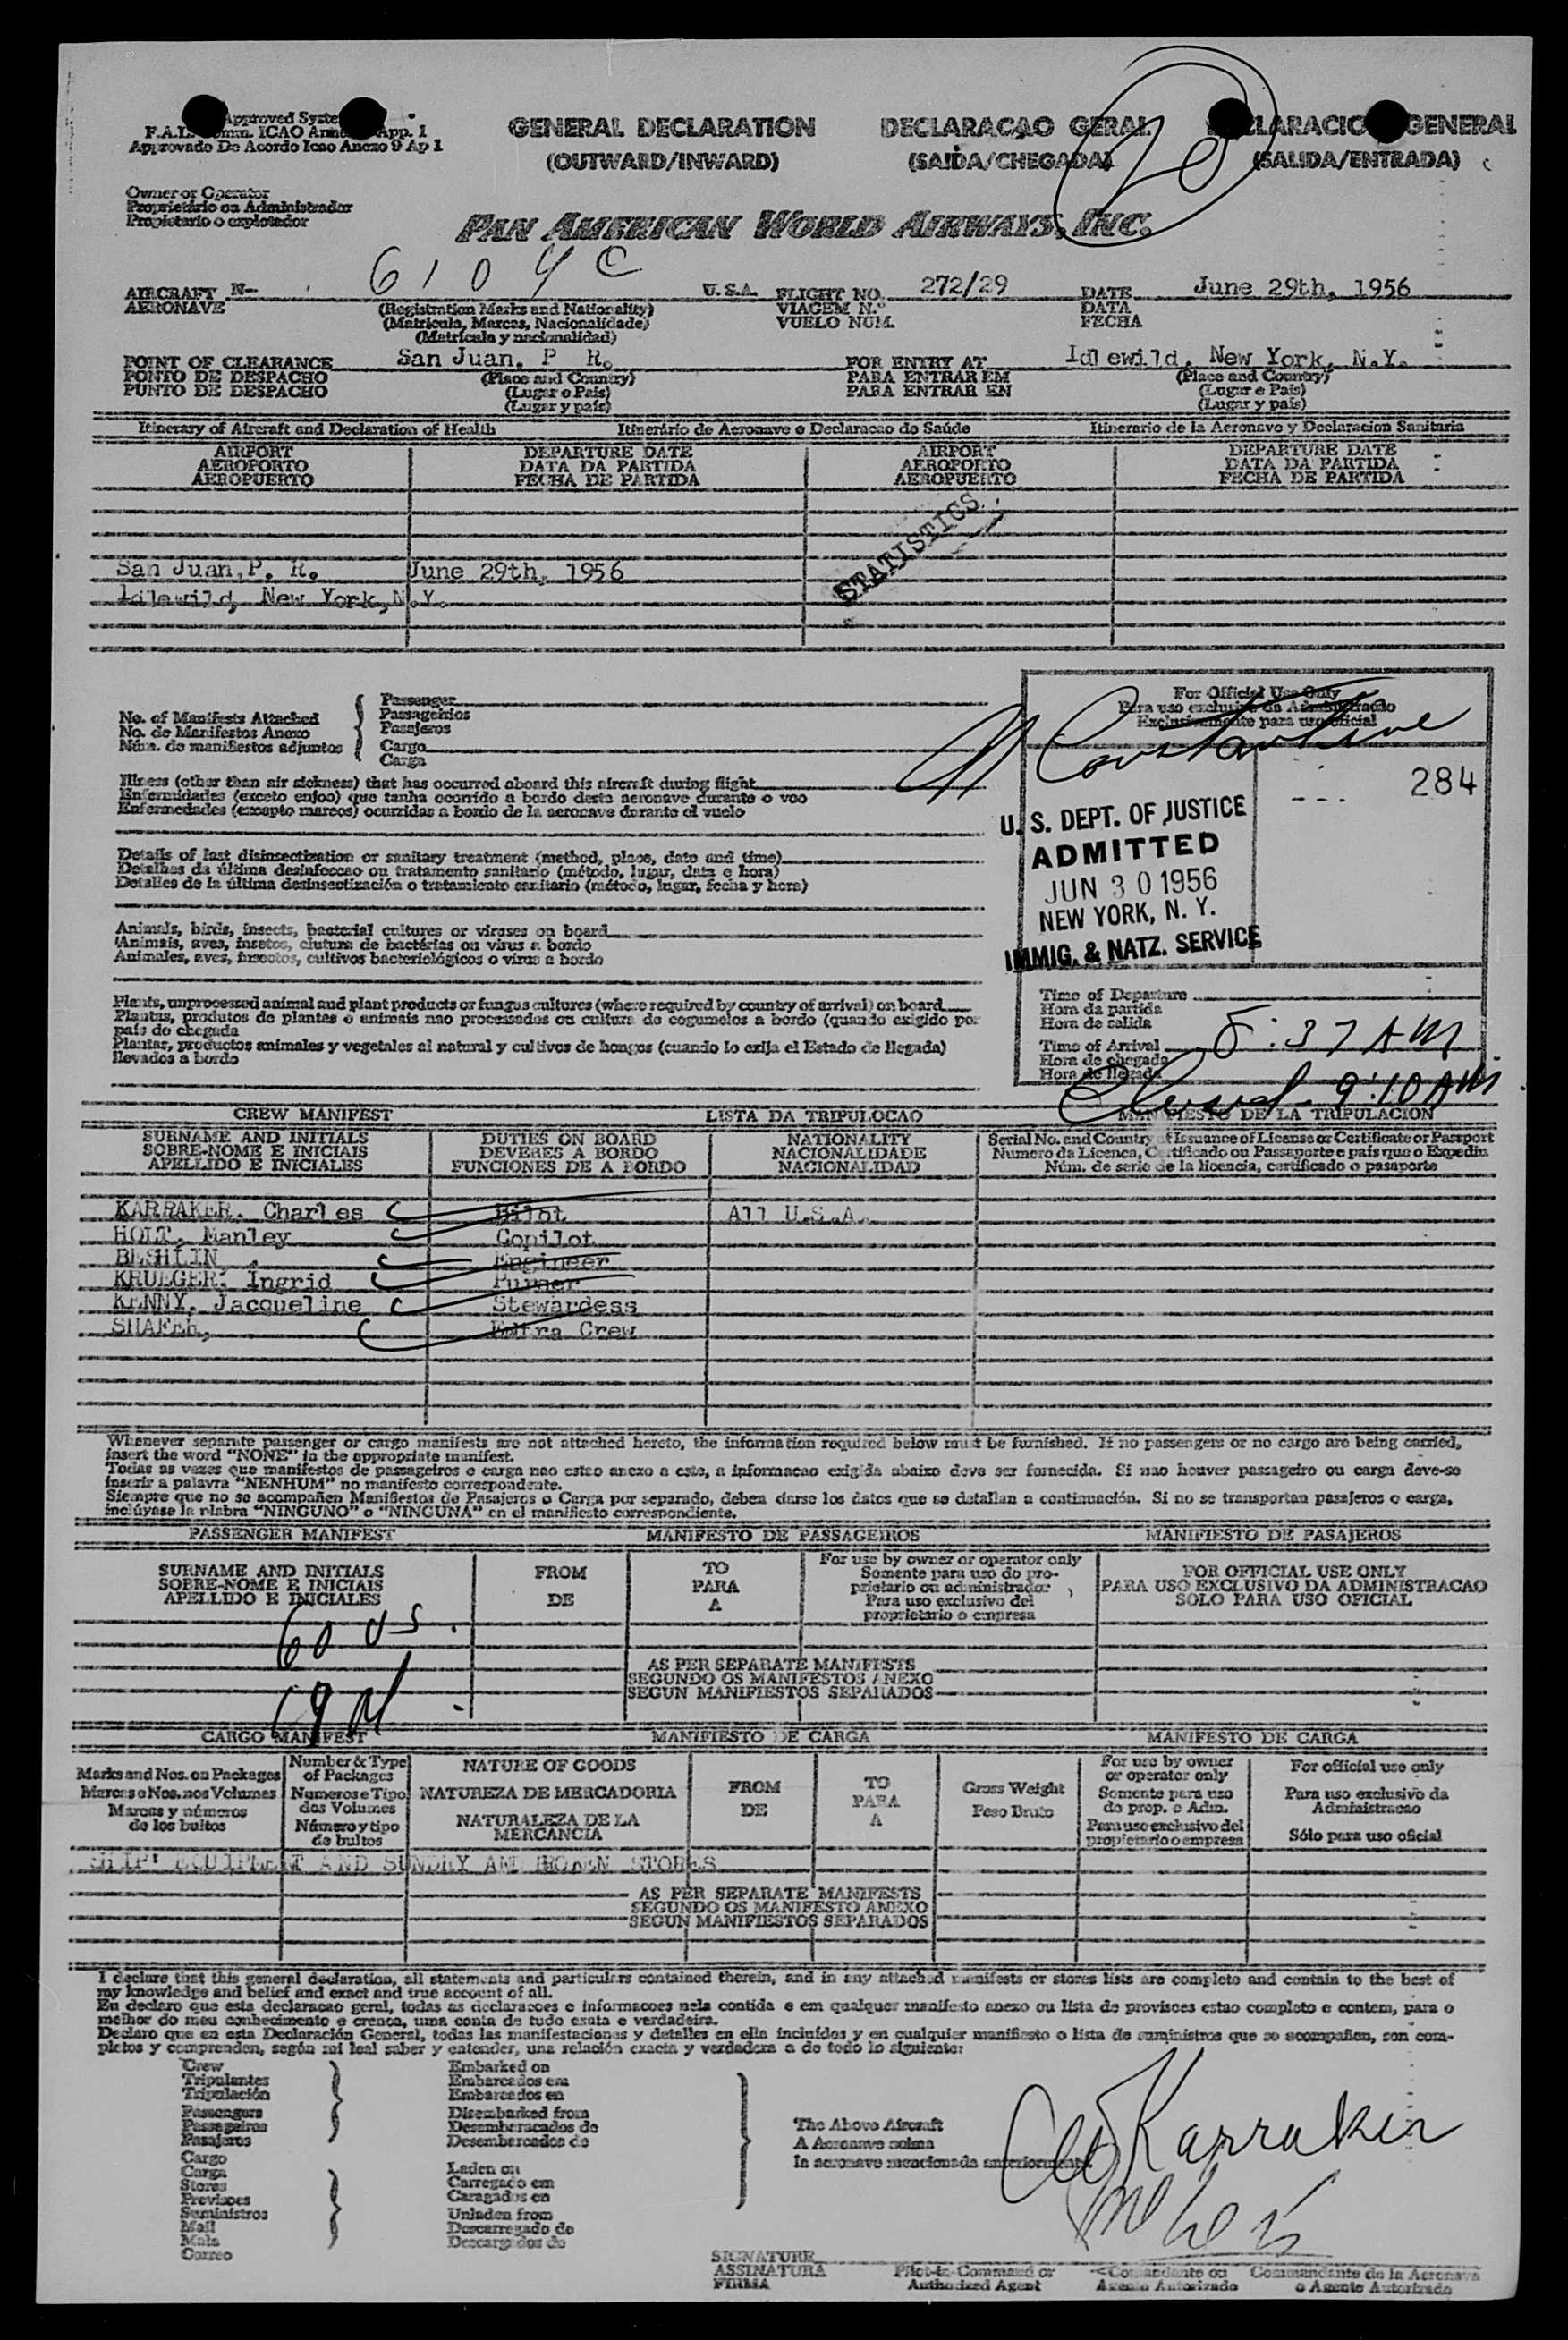 Approved System
F.A.L. Comm. ICAO Annex App. 1
Approvado De Acordo Icao Anexo 9 Ap 1
GENERAL DECLARATION
(OUTWARD/INWARD)
DECLARACAO GERAL
(SAIDA/CHEGADA)
DECLARACION GENERAL
(SALIDA/ENTRADA)
20
Owner or Operator
Proprietário ou Administrador
Propietario o explotador
PAN AMERICAN WORLD AIRWAYS, INC.
AIRCRAFT N- 6109C U.S.A. FLIGHT NO. 272/29 DATE June 29th, 1956
AERONAVE (Registration Marks and Nationality) VIAGEM N.º DATA
(Matricula, Marcas, Nacionalidade) VUELO NUM. FECHA
(Matrícula y nacionalidad)
POINT OF CLEARANCE San Juan, P R. FOR ENTRY AT Idlewild, New York, N.Y.
PONTO DE DESPACHO (Place and Country) PARA ENTRAR EM (Place and Country)
PUNTO DE DESPACHO (Lugar e País) PARA ENTRAR EN (Lugar e País)
(Lugar y país) (Lugar y país)
Itinerary of Aircraft and Declaration of Health Itinerário de Aeronave e Declaracao do Saúde Itinerario de la Aeronave y Declaracion Sanitaria
AIRPORT DEPARTURE DATE AIRPORT DEPARTURE DATE
AEROPORTO DATA DA PARTIDA AEROPORTO DATA DA PARTIDA
AEROPUERTO FECHA DE PARTIDA AEROPUERTO FECHA DE PARTIDA
STATISTICS
San Juan, P. R. June 29th, 1956
Idlewild, New York, N.Y.
No. of Manifests Attached
No. de Manifestos Anexo
Núm. de manifiestos adjuntos
Passenger
Passageiros
Pasajeros
Cargo
Carga
Illness (other than air sickness) that has occurred aboard this aircraft during flight
Enfermidades (exceto enjoo) que tanha ocorrido a bordo desta aeronave durante o voo
Enfermedades (excepto mareos) ocurridas a bordo de la aeronave durante el vuelo
Details of last disinsectization or sanitary treatment (method, place, date and time)
Detalhes da última desinfeccao ou tratamento sanitario (método, lugar, data e hora)
Detalles de la última desinsectización o tratamiento sanitario (método, lugar, fecha y hora)
Animals, birds, insects, bacterial cultures or viruses on board
Animais, aves, insetos, clutura de bactérias ou virus a bordo
Animales, aves, insectos, cultivos bacteriológicos o virus a bordo
Plants, unprocessed animal and plant products or fungus cultures (where required by country of arrival) on board
Plantas, produtos de plantas e animais nao processados ou cultura de cogumelos a bordo (quando exigido por
país de chegada
Plantas, productos animales y vegetales al natural y cultivos de hongos (cuando lo exija el Estado de llegada)
llevados a bordo
For Official Use Only
Para uso exclusivo da Administração
Exclusivamente para uso oficial
Constantine
284
U. S. DEPT. OF JUSTICE
ADMITTED
JUN 30 1956
NEW YORK, N. Y.
IMMIG. & NATZ. SERVICE
Time of Departure
Hora da partida
Hora de salida
Time of Arrival 8:37 AM
Hora de chegada
Hora de llegada
Cleared - 9:10 AM
CREW MANIFEST LISTA DA TRIPULOCAO MANIFIESTO DE LA TRIPULACION
SURNAME AND INITIALS DUTIES ON BOARD NATIONALITY Serial No. and Country of Issuance of License or Certificate or Passport
SOBRE-NOME E INICIAIS DEVERES A BORDO NACIONALIDADE Numero da Licenca, Certificado ou Passaporte e pais que o Expediu
APELLIDO E INICIALES FUNCIONES DE A BORDO NACIONALIDAD Núm. de serie de la licencia, certificado o pasaporte
KARRAKER, Charles Pilot All U.S.A.
HOLT, Manley Copilot
BESHLIN Engineer
KRUEGER, Ingrid Purser
KENNY, Jacqueline Stewardess
SHAFER, Extra Crew
Whenever separate passenger or cargo manifests are not attached hereto, the information required below must be furnished. If no passengers or no cargo are being carried,
insert the word "NONE" in the appropriate manifest.
Todas as vezes que manifestos de passageiros e carga nao estao anexo a este, a informacao exigida abaixo deve ser fornecida. Si nao houver passageiro ou carga deve-se
inserir a palavra "NENHUM" no manifesto correspondente.
Siempre que no se acompañen Manifiestos de Pasajeros o Carga por separado, deben darse los datos que se detallan a continuación. Si no se transportan pasajeros o carga,
inclúyase la plabra "NINGUNO" o "NINGUNA" en el manifiesto correspondiente.
PASSENGER MANIFEST MANIFESTO DE PASSAGEIROS MANIFIESTO DE PASAJEROS
SURNAME AND INITIALS
SOBRE-NOME E INICIAIS
APELLIDO E INICIALES
FROM
DE
TO
PARA
A
For use by owner or operator only
Somente para uso do pro-
prietario ou administrador
Para uso exclusivo del
proprietario o empresa
FOR OFFICIAL USE ONLY
PARA USO EXCLUSIVO DA ADMINISTRACAO
SOLO PARA USO OFICIAL
60 US
AS PER SEPARATE MANIFESTS
SEGUNDO OS MANIFESTOS ANEXO
SEGUN MANIFIESTOS SEPARADOS
CARGO MANIFEST MANIFIESTO DE CARGA MANIFESTO DE CARGA
Marks and Nos. on Packages
Marcas e Nos. nos Volumes
Marcas y números
de los bultos
Number & Type
of Packages
Numeros e Tipo
dos Volumes
Número y tipo
de bultos
NATURE OF GOODS
NATUREZA DE MERCADORIA
NATURALEZA DE LA
MERCANCIA
FROM
DE
TO
PARA
A
Gross Weight
Peso Bruto
For use by owner
or operator only
Somente para uso
do prop. e Adm.
Para uso exclusivo del
propietario o empresa
For official use only
Para uso exclusivo da
Administracao
Sólo para uso oficial
SHIP' EQUIPMENT AND SUNDRY AND BROKEN STORES
AS PER SEPARATE MANIFESTS
SEGUNDO OS MANIFESTO ANEXO
SEGUN MANIFIESTOS SEPARADOS
I declare that this general declaration, all statements and particulars contained therein, and in any attached manifests or stores lists are complete and contain to the best of
my knowledge and belief and exact and true account of all.
Eu declaro que esta declaracao geral, todas as declaracoes e informacoes nela contida e em qualquer manifesto anexo ou lista de provisoes estao completo e contem, para o
melhor do meu conhecimento e crenca, uma conta de tudo exata e verdadeira.
Declaro que en esta Declaración General, todas las manifestaciones y detalles en ella incluídos y en cualquier manifiesto o lista de suministros que se acompañen, son com-
pletos y comprenden, según mi leal saber y entender, una relación exacta y verdadera a de todo lo siguiente:
Crew
Tripulantes
Tripulación
Passengers
Passageiros
Pasajeros
Cargo
Carga
Stores
Provisoes
Suministros
Mail
Mala
Correo
Embarked on
Embarcados em
Embarcados en
Disembarked from
Desembaracados de
Desembarcados de
Laden on
Carregado em
Caragados en
Unladen from
Descarregado de
Descargados de
The Above Aircraft
A Aeronave acima
la aeronave mencionada anteriormente
Karraker
SIGNATURE
ASSINATURA
FIRMA
Pilot-in-Command or
Authorized Agent
Comandante ou
Agente Autorizado
Commandante de la Aeronave
o Agente Autorizado